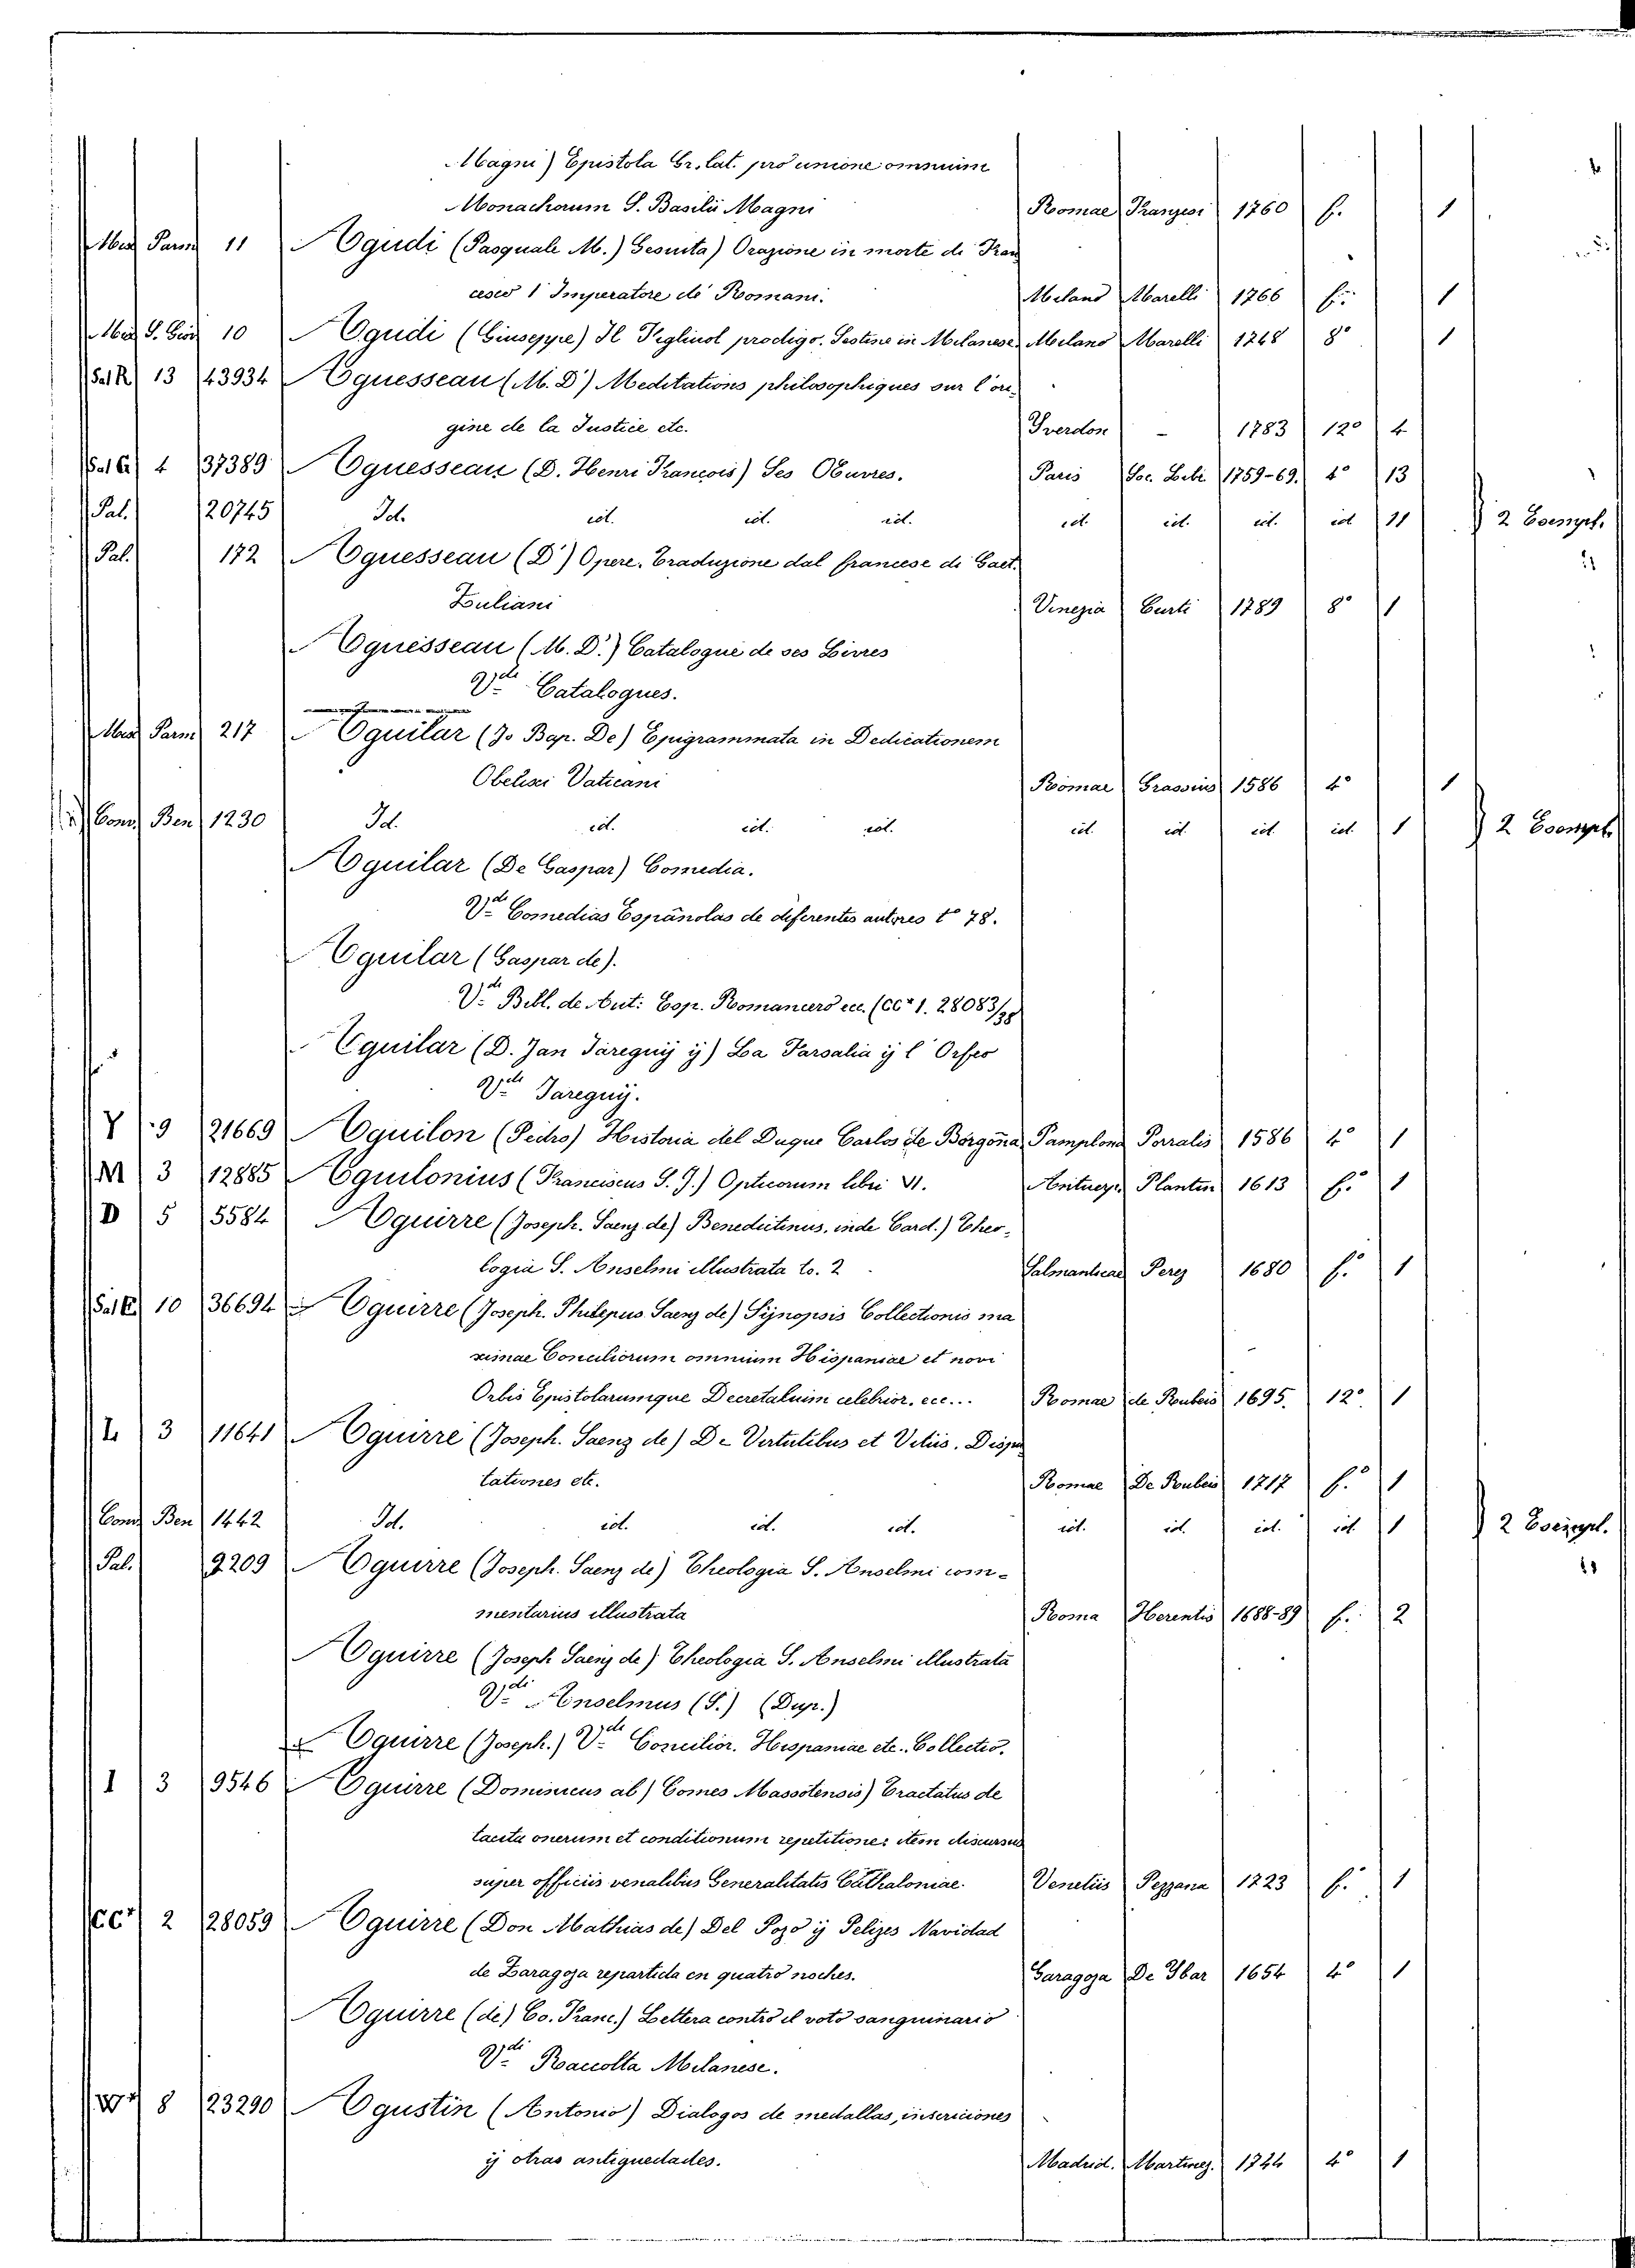 Magni) Epistola Gr. lat. pro unione omnium
Monachorum S. Basilii Magni Romae Franzesi 1760 f. 1
Parm 11 Agudi (Pasquale M.) Gesuita) Orazione in morte di Fran
cesco I Imperatore de Romani. Milano Marelli 1766 f. 1
10 Agudi (Giuseppe) Il Figliuol prodigo. Sestine in Milanese. Milano Marelli 1768 8° 1
Sal R 13 43934 Aguesseau (M. D') Meditations philosophiques sur l'ori-
gine de la Justice etc. Yverdon - 1783 12° 4
Sal G 4 37389 Aguesseau (D. Henri François) Ses Œuvres. Paris Soc. Libr. 1759-69. 4° 13
Pal. 20745 Id. id. id. id. id. id. id. id 11 2 Esempl.
Pal. 172 Aguesseau (D') Opere. Traduzione dal francese di Gaet.
Zuliani Venezia Curti 1789 8° 1
Aguesseau (M. D'.) Catalogue de ses Livres
V.de Catalogues.
Parm 217 Aguilar (Jo Bap. De) Epigrammata in Dedicationem
Obelisci Vaticani Romae Grassius 1586 4° 1
Conv Ben 1230 Id. id. id. id. id. id. id. id. 1 2 Esempl.
Aguilar (De Gaspar) Comedia.
V.de Comedias Espãnolas de diferentes autores t° 78.
Aguilar (Gaspar de).
V.de Bibl. de Aut: Esp. Romancero ecc. (CC+ 1. 28083/38
Aguilar (D. Jan Jareguy ÿ) La Farsalia ÿ l'Orfeo
V.de Jareguÿ.
Y 9 21669 Aguilon (Pedro) Historia del Duque Carlos de Borgoña Pamplona Porralis 1586 4° 1
M 3 12885 Aguilonius (Franciscus S. J.) Opticorum libri VI. Antuerp. Plantin 1613 f.° 1
D 5 5584 Aguirre (Joseph. Saenz de) Benedictinus, inde Card.) Theo-
logia S. Anselmi illustrata to. 2 Salmanticae Perez 1680 f.° 1
Sal E 10 36694 Aguirre (Joseph. Philepus Saenz de) Sÿnopsis Collectionis ma
ximae Conciliorum omnium Hispaniae et novi
Orbis Epistolarumque Decretalium celebrior. ecc... Romae de Rubeis 1695. 12° 1
L 3 11641 Aguirre (Joseph. Saenz de) De Virtutibus et Vitiis. Dispu
tationes etc. Romae De Rubeis 1717 f.° 1
Conv Ben 1442 Id. id. id. id. id. id. id. id. 1 2 Esempl.
Pal. 9209 Aguirre (Joseph. Saenz de) Theologia S. Anselmi com-
mentarius illustrata Roma Herentis 1688-89 f. 2
Aguirre (Joseph Saenz de) Theologia S. Anselmi illustrata
V.di Anselmus (S.) (Dup.)
Aguirre (Joseph.) V.de Concilior. Hispaniae etc. Collectio.
I 3 9546 Aguirre (Dominicus ab) Comes Massotensis) Tractatus de
tacita onerum et conditionum repetitione: item discursus
super officiis venalibus Generalitatis Cathaloniae. Venetiis Pezzana 1723 f. 1
CC+ 2 28059 Aguirre (Don Mathias de) Del Pozo ÿ Felizes Navidad
de Zaragoza repartida en quatro noches. Saragoza De Ibar 1654 4° 1
Aguirre (de) Co. Franc.) Lettera contro il voto sanguinario
V.di Raccolta Milanese.
8 23290 Agustin (Antonio) Dialogos de medallas, inscriciones
ÿ otras antiguedades. Madrid. Martinez. 1744 4° 1